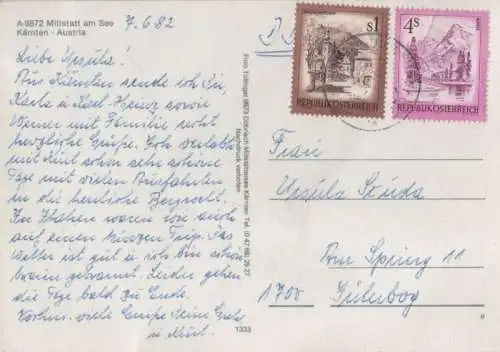 A-9872 Millstatt am See
Kärnten - Austria
7.6.82
Liebe Ursula!
Aus Kärnten sende ich Dir,
Karla u. Karl-Heinz sowie
Werner mit Familie recht
herzliche Grüße. Ich verlebte
mit Kurt schon sehr schöne
Tage mit vielen
in die herrliche Bergwelt.
In Italien waren wir auch
auf einen kurzen Trip. Das
Wetter ist gut u. ich bin schon
braun gebrannt. Leider gehen
die Tage bald zu Ende.
viele Deine
u. Kurt.
Foto Tollinger 9873 Döbriach Millstättersee Kärnten Tel. (0 42 46) 25 27
Nachdruck verboten
1333
S1
REPUBLIK ÖSTERREICH
4S
REPUBLIK ÖSTERREICH
Frau
Ursula Skuda
Am Spring 11
1700 Jüterbog